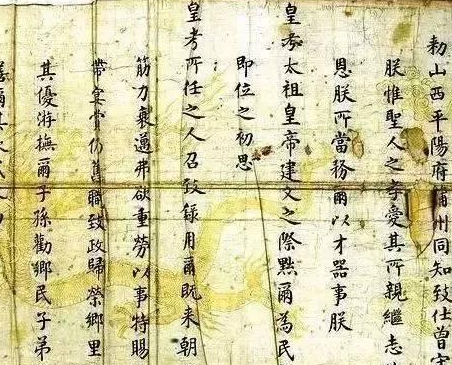 勑山西平陽府蒲州同知致仕曾
朕惟聖人之孝愛其所親繼志
恩朕所當務爾以才器事朕
皇考太祖皇帝建文之際黜爾為民
即位之初思
皇考所任之人召致錄用爾既来朝
筋力衰邁弗欲重勞以事特賜
帶宴賞仍舊職致政歸榮鄉里
其優游撫爾子孫勸鄉民子弟